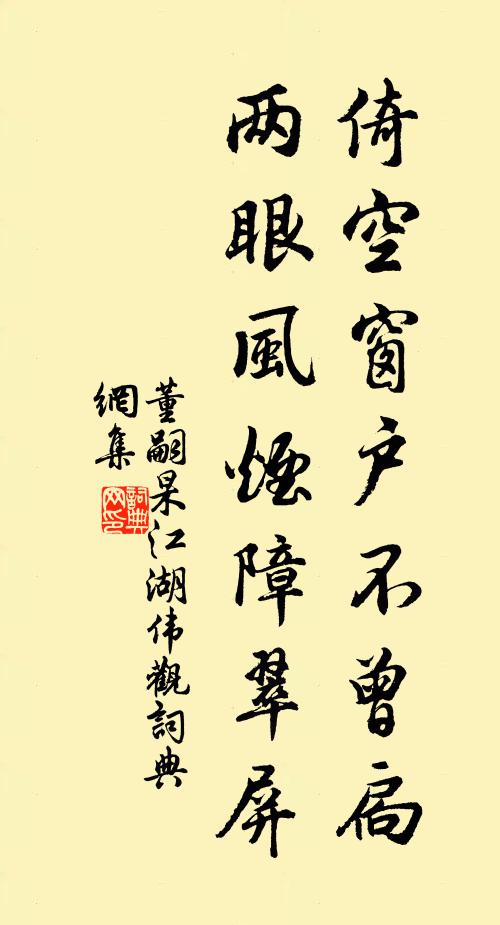 倚空窗户不曾扃
两眼風煙障翠屏
董嗣杲江湖伟觀詞典
網集
詞典网印